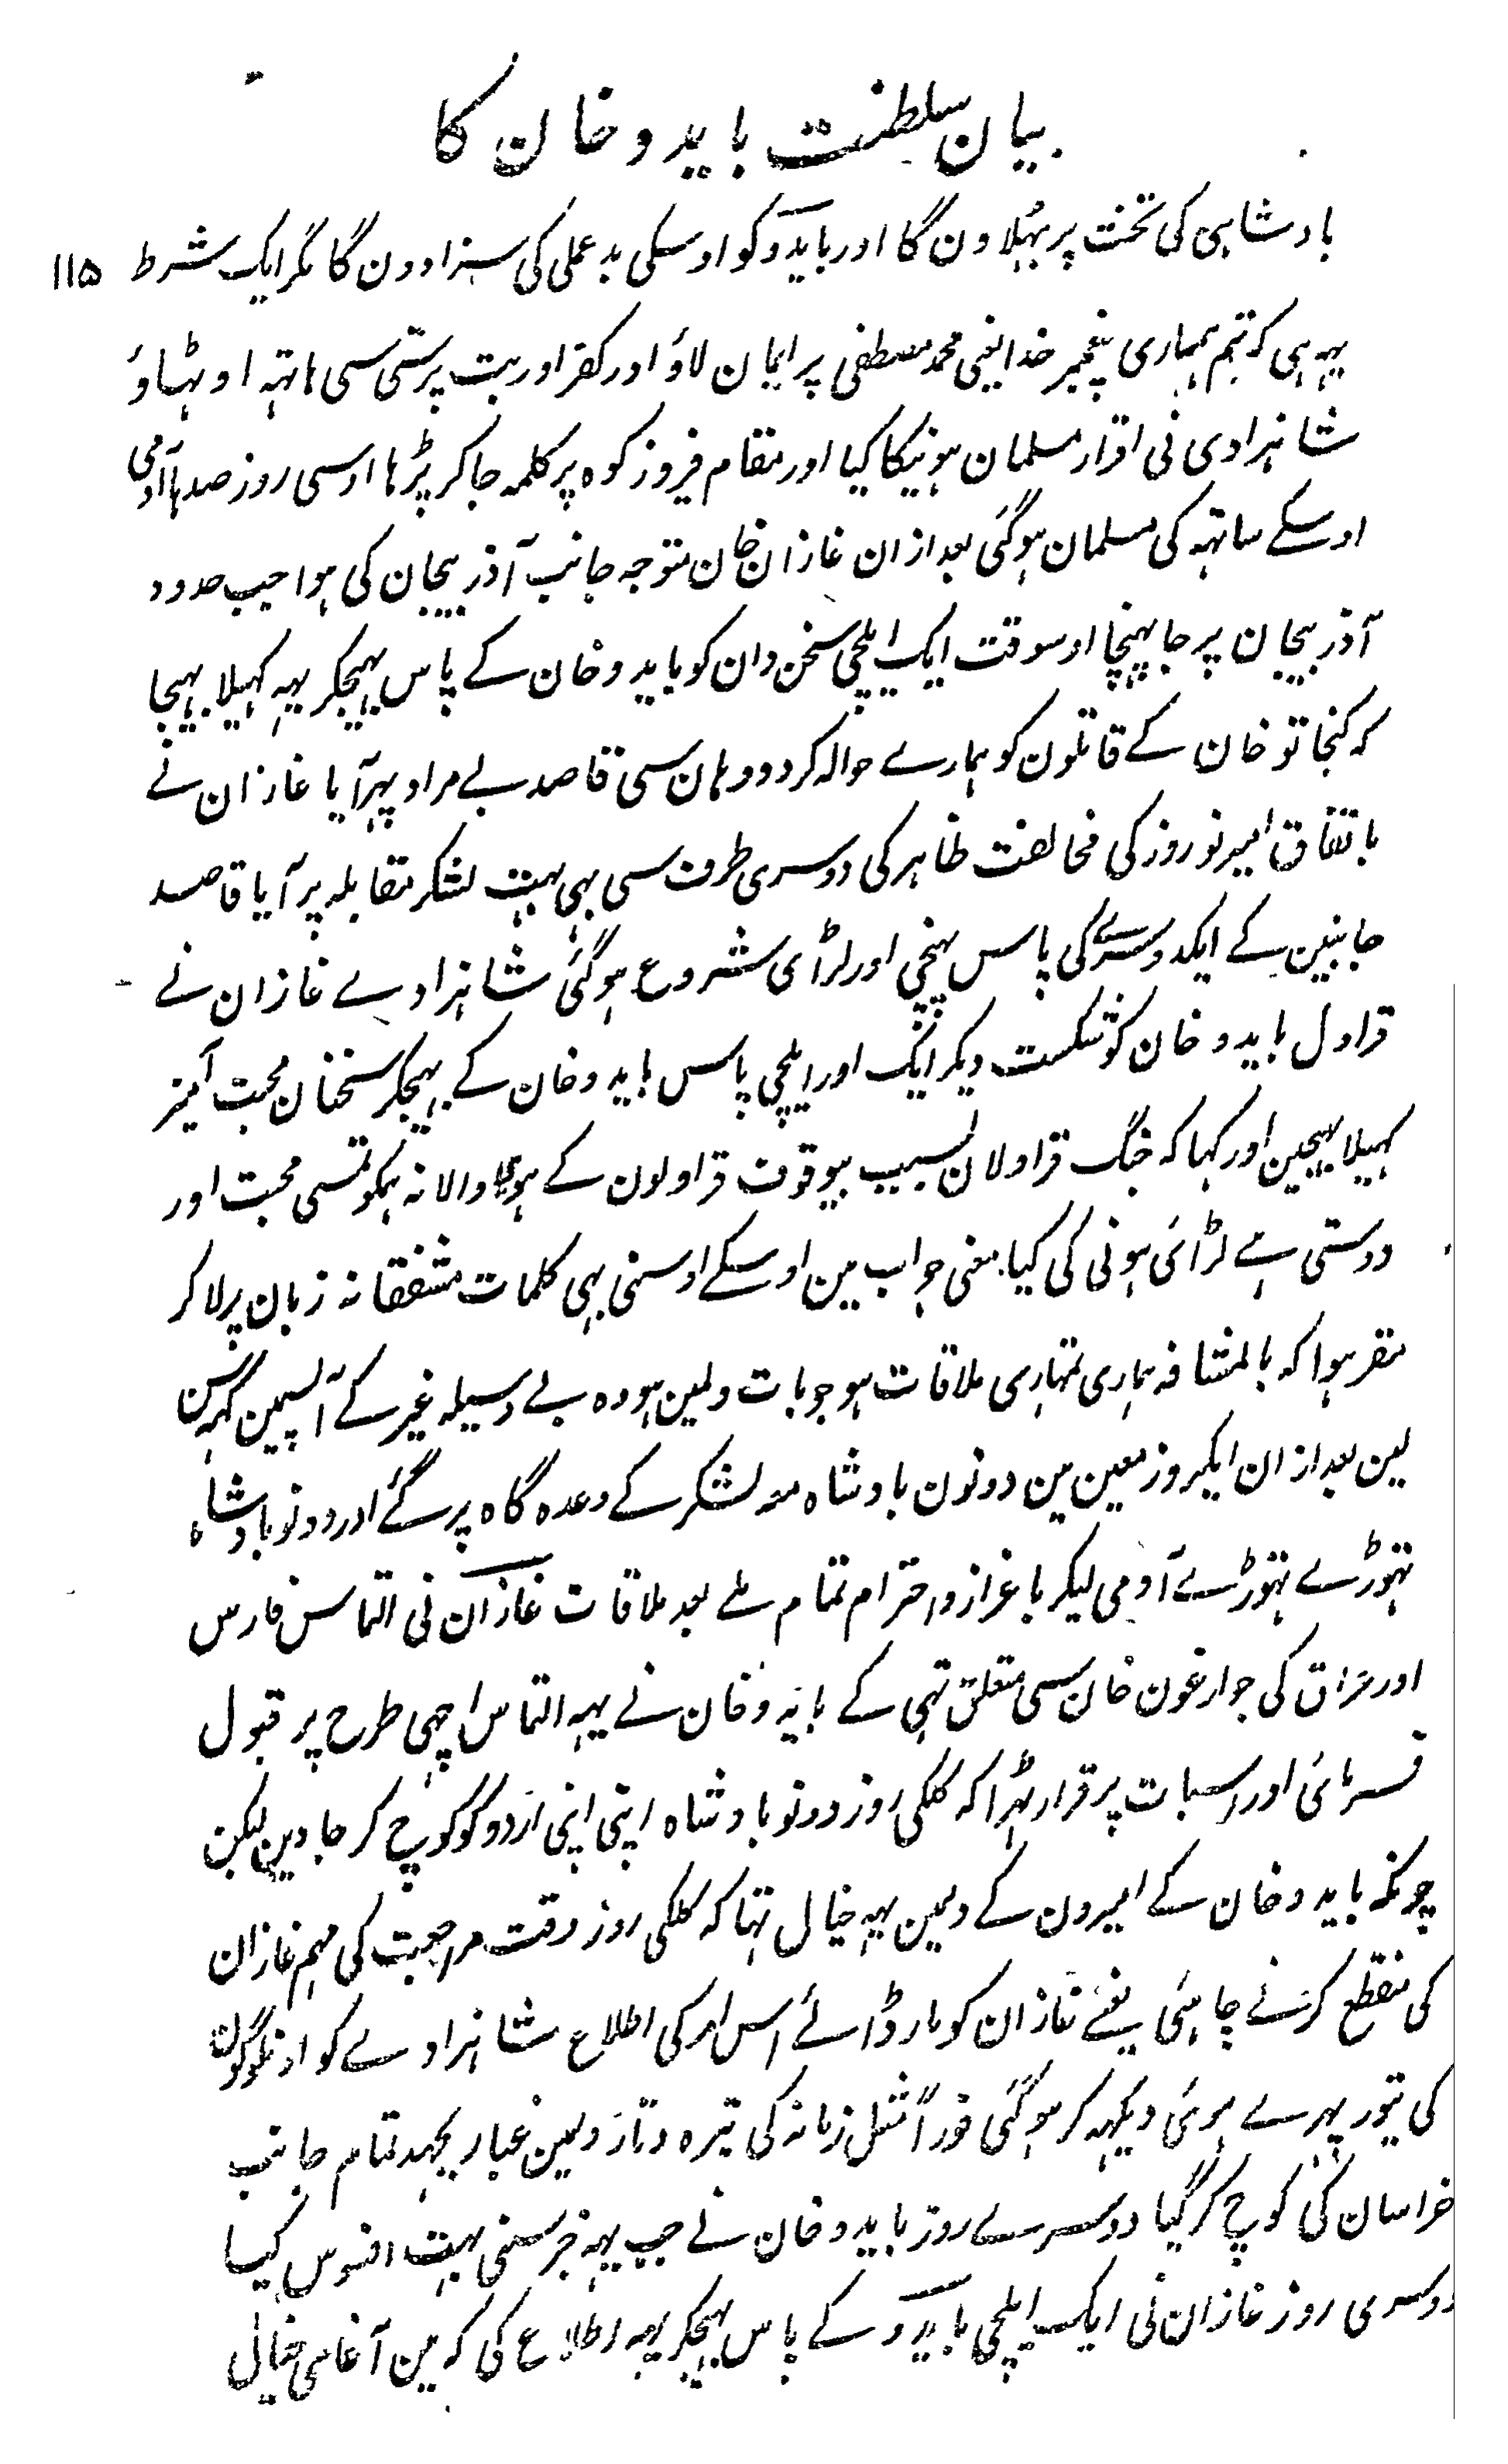 بیان سلطنت بایدو خان کا
بادشاہی کی تخت پر بٹہلاون گا اور بایدو کو اوسکی بد عملی کی سزا دون گا مگر ایک شرط ۱۱۵
یہہ ہی کہ تم ہماری پیغمبر خدا یعنی محمد مصطفی پر ایمان لاؤ اور کفر اور بت پرستی سی ہاتہہ اوٹہاؤ
شاہزادی نی اقرار مسلمان ہونیکا کیا اور مقام فیروز کوہ پر کلمہ جا کر پڑہا اوسی روز صدہا آدمی
اوسکے ساتہہ کی مسلمان ہوگئی بعد ازان غازان خان متوجہ جانب آذربیجان کی ہوا جب حدود
آذربیجان پر جا پہنچا اوسوقت ایک ایلچی سخن دان کو بایدو خان کے پاس بہیجکر یہہ کہیلا بہیجا
کہ کنجاتو خان کے قاتلون کو ہمارے حوالہ کردو وہان سی قاصد بے مراد پہر آیا غازان نے
باتفاق امیر نوروز کی مخالفت ظاہر کی دوسری طرف سی بہی بہت لشکر مقابلہ پر آیا قاصد
جانبین کے ایکدوسرے کی پاس پہنچی اور لڑائی شروع ہوگئی شاہزادے غازان نے
قراول بایدو خان کو شکست دیکر ایک اور ایلچی پاس بایدو خان کے بہیجکر سخنان محبت آمیز
کہیلا بہیجین اور کہا کہ جنگ قراولان بسبب بیوقوف قراولون کے والا نہ ہمکو تمسی محبت اور
دوستی ہے لڑائی ہونی کی کیا معنی جواب مین اوسکے اوسنی بہی کلمات مشفقانہ زبان پر لا کر
مقر ہوا کہ بالمشافہ ہماری تمہاری ملاقات ہو جو بات دلمین ہو وہ بے وسیلہ غیر کے آپسمین کہہ سن
لین بعد ازان ایکروز معین مین دونون بادشاہ معہ لشکر کے وعدہ گاہ پر گئے اور دونو بادشاہ
تہوڑے تہوڑے آدمی لیکر باعزاز و احترام تمام ملے بعد ملاقات غازان نی التماس فارس
اور عراق کی جو ارغون خان سی متعلق تہی کے بایدوخان نے یہہ التماس اچہی طرح پر قبول
فرمائی اور اسبات پر قرار ٹہرا کہ کلکی روز دونو بادشاہ اپنی اپنی اردو کو کوچ کر جاوین لیکن
چونکہ بایدو خان کے امیرون کے دلمین یہہ خیال تہا کہ کلکی روز وقت مراجعت کی مہم غازان
کی منقطع کرنے چاہئی یعنے غازان کو مار ڈالئے اس امر کی اطلاع شاہزادے کو اونلوگون
کی تیور پہرے ہوئی دیکہہ کر ہوگئی فوراً مثل زمانہ کی تیرہ و تار دلمین غبار بجہد تمام جانب
خراسان کی کوچ کر گیا دوسرے روز بایدو خان نے جب یہہ خبر سنی بہت افسوس کیا
دوسری روز غازان نی ایک ایلچی بایدو کے پاس بہیجکر یہہ اطلاع کی کہ مین آغاسی خیال